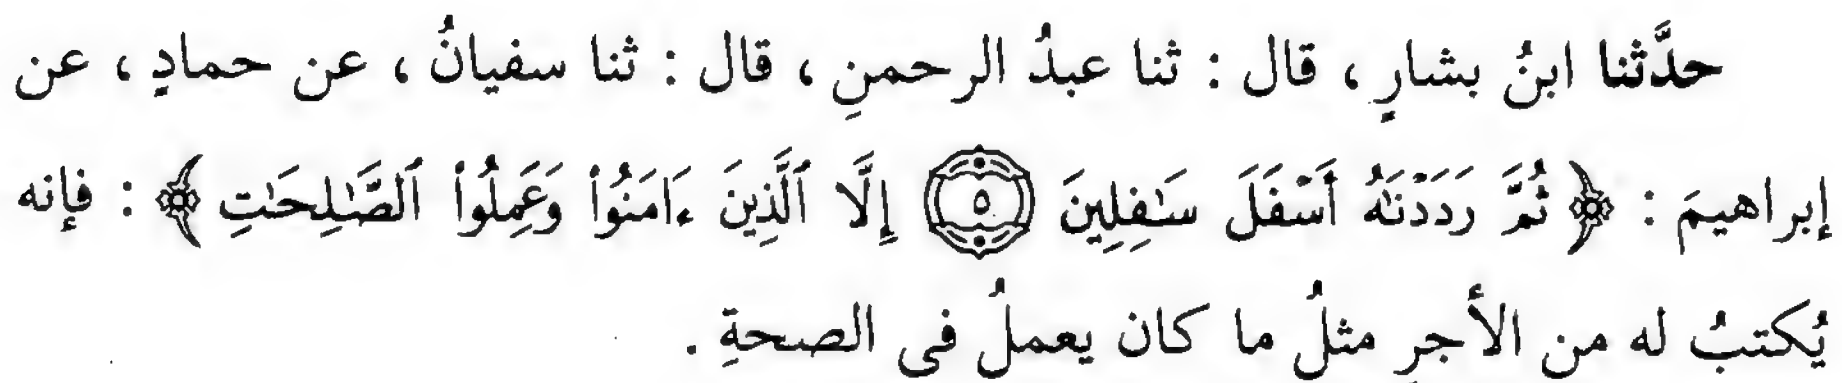 حدَّثنا ابنُ بشارٍ ، قال : ثنا عبدُ الرحمنِ ، قال : ثنا سفيانُ ، عن حمادٍ ، عن
إبراهيمَ : ﴿ ثُمَّ رَدَدْنَٰهُ أَسْفَلَ سَٰفِلِينَ ⁝٥⁝ إِلَّا ٱلَّذِينَ ءَامَنُوا۟ وَعَمِلُوا۟ ٱلصَّٰلِحَٰتِ ﴾ : فإنه
يُكتبُ له من الأجرِ مثلُ ما كان يعملُ فى الصحةِ .